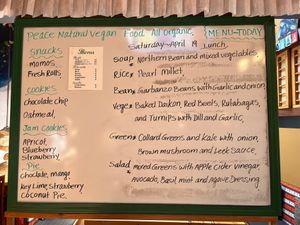 Peace Natural Vegan Food All Organic
MENU-TODAY
Saturday-April 19 Lunch
Snacks
momos,
Fresh Rolls
Cookies
Chocolate Chip
Oatmeal,
Jam Cookies
Apricot,
Blueberry
Strawberry
Pie
Choclate, mango
Key Lime, Strawberry
Coconut Pie.
Menu
Soup Northern Bean and mixed vegetables,
Rice Pearl Millet,
Bean Garbanzo Beans with Garlic and onion,
Veges Baked Daikon, Red Beets, Rutabagas,
and Turnips with Dill and Garlic,
Greens Collard Greens and Kale with onion,
Brown mushroom and Leek Sauce,
Salad mixed Greens with Apple Cider Vinegar,
Avocado, Basil mint and Agave Dressing